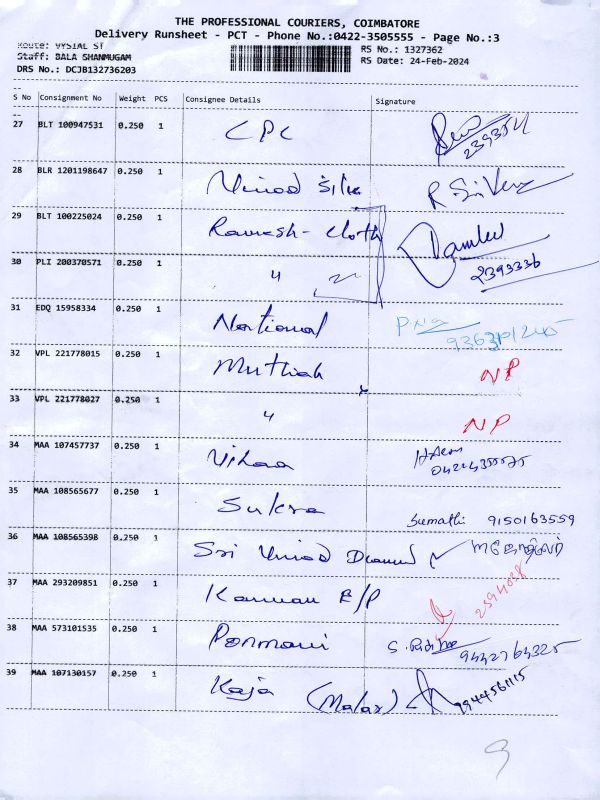 THE PROFESSIONAL COURIERS, COIMBATORE
Delivery Runsheet - PCT - Phone No.:0422-3505555 - Page No.:3
Route: VYSIAL ST
RS No.: 1327362
Staff: BALA SHANMUGAM
RS Date: 24-Feb-2024
DRS No.: DCJB132736203
S No Consignment No Weight PCS Consignee Details Signature
27 BLT 100947531 0.250 1 CPC
28 BLR 1201198647 0.250 1 Vinod Silk
29 BLT 100225024 0.250 1 Ramesh - Cloth
30 PLI 200370571 0.250 1 " 2393336
31 EDQ 15958334 0.250 1 National
32 VPL 221778015 0.250 1 Muthiah NP
33 VPL 221778027 0.250 1 " NP
34 MAA 107457737 0.250 1
35 MAA 108565677 0.250 1 Sukra Sumathi 9150163559
36 MAA 108565398 0.250 1 Sri Vinod
37 MAA 293209851 0.250 1 Kannan E/P 2394038
38 MAA 573101535 0.250 1 Ponmani 9442764325
39 MAA 107130157 0.250 1 Kaja (Malar) 9944561115
9